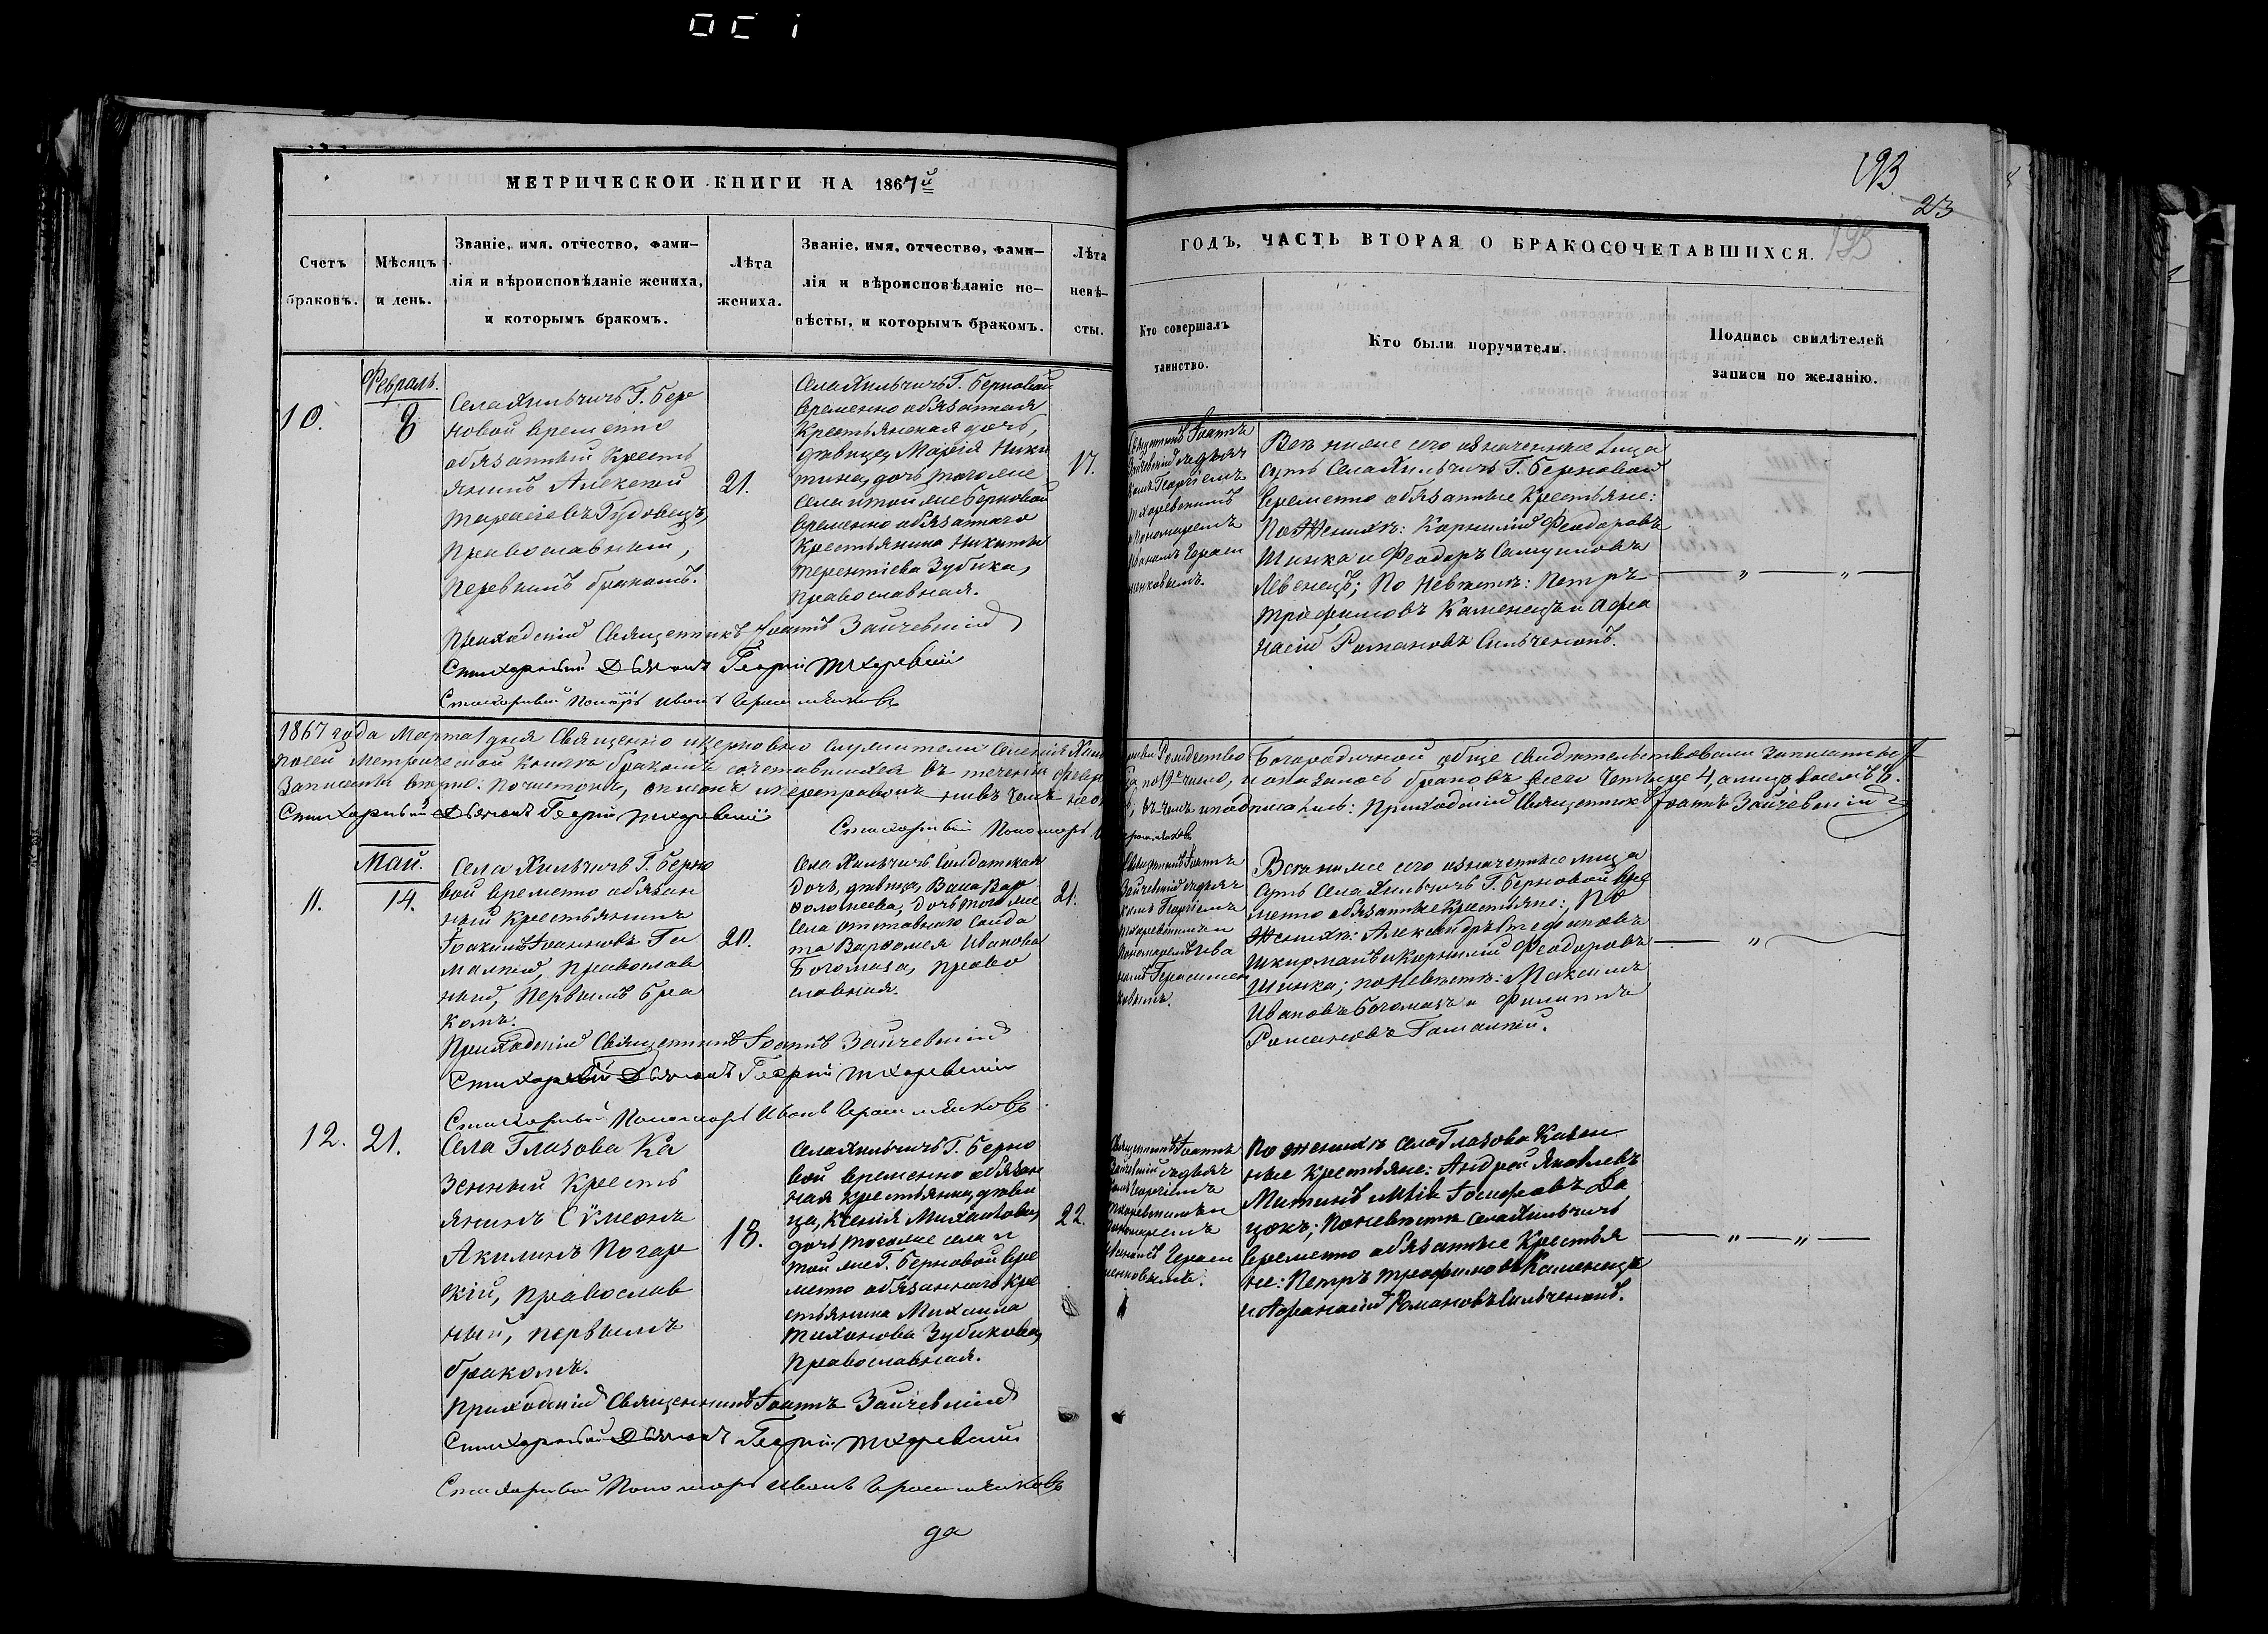 МЕТРИЧЕСКОЙ КНИГИ НА 1867й
Счетъ
браковъ.
Мѣсяцъ
и день.
Званіе, имя, отчество, фами-
лія и вѣроисповѣданіе жениха,
и которымъ бракомъ.
Лѣта
жениха.
Званіе, имя, отчество, фами-
лія и вѣроисповѣданіе не-
вѣсты, и которымъ бракомъ.
Лѣта
невѣ-
сты.
10.
Февраль.
8
Села Хильчичь Г. Бер
новой временно
обязанный кресть
янинъ Алексей
Тарасіевъ Гудовецъ,
православный,
первымъ бракомъ.
21.
Села Хильчичь Г. Берновой
временно обязанная
крестьянская дочь,
дѣвица, Марія Ники
тина, дочь того же
села и той же Берновой
временно обязаннаго
крестьянина Никиты
Терентіева Зубика,
православная.
17.
Приходскій Священникъ Іоаннъ Зайчевскій
Стихарный Дьячокъ Георгій Тихоревскій
Стихарный Пономарь Иванъ Герасименковъ
1867 года Марта 1 дня Священно и церковно служители
по сей метрической книгѣ бракомъ сочетавшихся въ теченіи
Записаны вѣрно:
Стихарный Дьячокъ Георгій Тихоревскій
Стихарный Пономарь
11.
Май.
14.
Села Хильчичь Г. Берно
вой временно обязан
ный крестьянинъ
Іоакимъ Іоанновъ Га
малкій, православ
ный, первымъ бра
комъ.
20.
Села Хильчичь Солдатская
дочь, дѣвица, Васса Вар
ѳоломеева, дочь того же
села отставнаго Солда
та Варѳомея Иванова
Богомаза, право
славная.
21.
Приходскій Священникъ Іоаннъ Зайчевскій
Стихарный Дьячокъ Георгій Тихоревскій
Стихарный Пономарь Иванъ Герасименковъ
12.
21.
Села Глазова Ка
зенный кресть
янинъ Сѵмеонъ
Акилинъ Погар
скій, православ
ный, первымъ
бракомъ.
18.
Села Хильчичь Г. Берно
вой временно обязан
ная крестьянка, дѣви
ца, Ксенія Михаилова,
дочь того же села и
той же Г. Берновой вре
менно обязаннаго кре
стьянина Михаила
Тихонова Зубикова,
православная.
22.
Приходскій Священникъ Іоаннъ Зайчевскій
Стихарный Дьячокъ Георгій Тихоревскій
Стихарный Пономарь Иванъ Герасименковъ
да
193
23
ГОДЪ, ЧАСТЬ ВТОРАЯ О БРАКОСОЧЕТАВШИХСЯ.
Кто совершалъ
таинство.
Кто были поручители.
Подпись свидѣтелей
записи по желанію.
Священникъ Іоаннъ
Зайчевскій съ дьяч
комъ Георгіемъ
Тихоревскимъ
и Пономаремъ
Иваномъ Герасі
менковымъ.
Всѣ ниже сего означенные лица
суть Села Хильчичь Г. Берновой
временно обязанные крестьяне:
По Женихѣ: Корнилій Феодоровъ
Шинка и Феодоръ Самуиловъ
Левенецъ; По Невѣстѣ: Петръ
Трофимовъ Каменецъ и Афа
насій Романовъ Сильченокъ.
Богородичной обще свидѣтельствовали записанныхъ
число, и оказалось браковъ всего четыре 4, а лицъ восемь 8.
въ чемъ и подписались: Приходскій Священникъ Іоаннъ Зайчевскій
Священникъ Іоаннъ
Зайчевскій съ дьяч
комъ Георгіемъ
Тихоревскимъ и
Пономаремъ Ива
номъ Герасимен
ковымъ.
Всѣ ниже сего означенные лица
суть Села Хильчичь Г. Берновой вре
менно обязанные крестьяне: По
Женихѣ: Александръ Стефановъ
Шкирманъ и Корнилій Феодоровъ
Шинка; по Невѣстѣ: Максимъ
Ивановъ Богомазъ и Филиппъ
Романовъ Гамалкій.
Священникъ Іоаннъ
Зайчевскій съ дьяч
комъ Георгіемъ
Тихоревскимъ и
Пономаремъ
Иваномъ Гераси
менковымъ.
По женихѣ села Глазова Казен
ные крестьяне: Андрей Яковлевъ
Митинъ Іосифовъ Да
цокъ; по невѣстѣ села Хильчичь
временно обязанные крестья
не: Петръ Трофимовъ Каменецъ
и Афанасій Романовъ Сильченокъ.